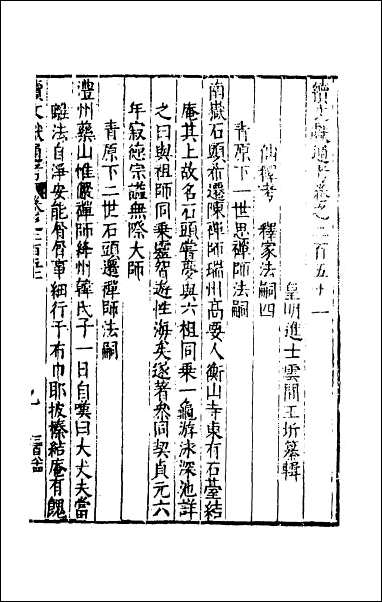 續文獻通考卷之二百五十一
皇明進士雲間王圻纂輯
仙釋考　釋家法嗣四
青原下一世思禪師法嗣
南嶽石頭希遷陳禪師瑞州高要人衡山寺東有石臺結
庵其上故名石頭嘗夢與六祖同乗一龜游泳深池詳
之曰與祖師同乗靈智遊性海矣遂著叅同契貞元六
年寂德宗謚無際大師
青原下二世石頭遷禪師法嗣
澧州藥山惟儼禪師絳州韓氏子一日自嘆曰大丈夫當
離法自淨安能屑屑事細行于布巾耶披榛結庵有餽
續文獻通考